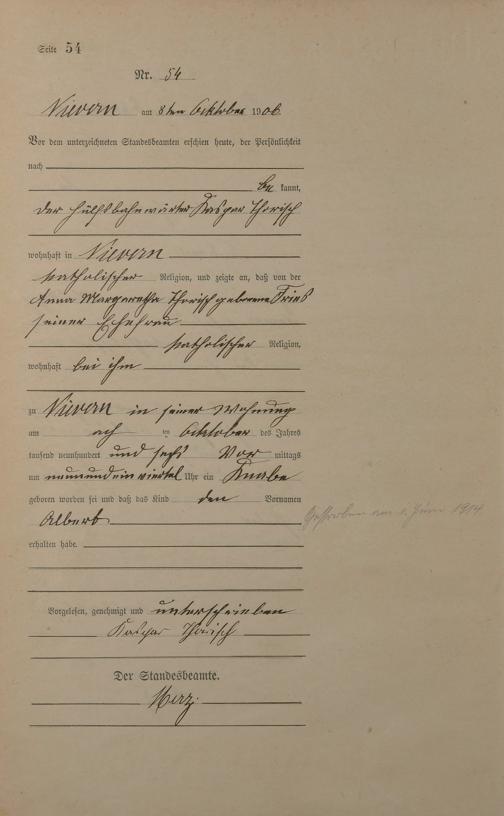 Seite 54
Nr. 54
Nievern am 8ten Oktober 1906
Vor dem unterzeichneten Standesbeamten erschien heute, der Persönlichkeit
nach
be kannt,
der Hülfsbahnwärter Kaspar Thorisch
wohnhaft in Nievern
katholischer Religion, und zeigte an, daß von der
Anna Margaretha Thorisch geborene Fries
seiner Ehefrau
katholischer Religion,
wohnhaft bei ihm
zu Nievern in seiner Wohnung
am ten Ocktober des Jahres
tausend neunhundert und sechs Vor mittags
um neunundeinviertel Uhr ein Knabe
geboren worden sei und daß das Kind den Vornamen
Albert
Gestorben am 1. Juni 1914
erhalten habe.
Vorgelesen, genehmigt und unterschrieben
Kaspar Thorisch
Der Standesbeamte.
Merz